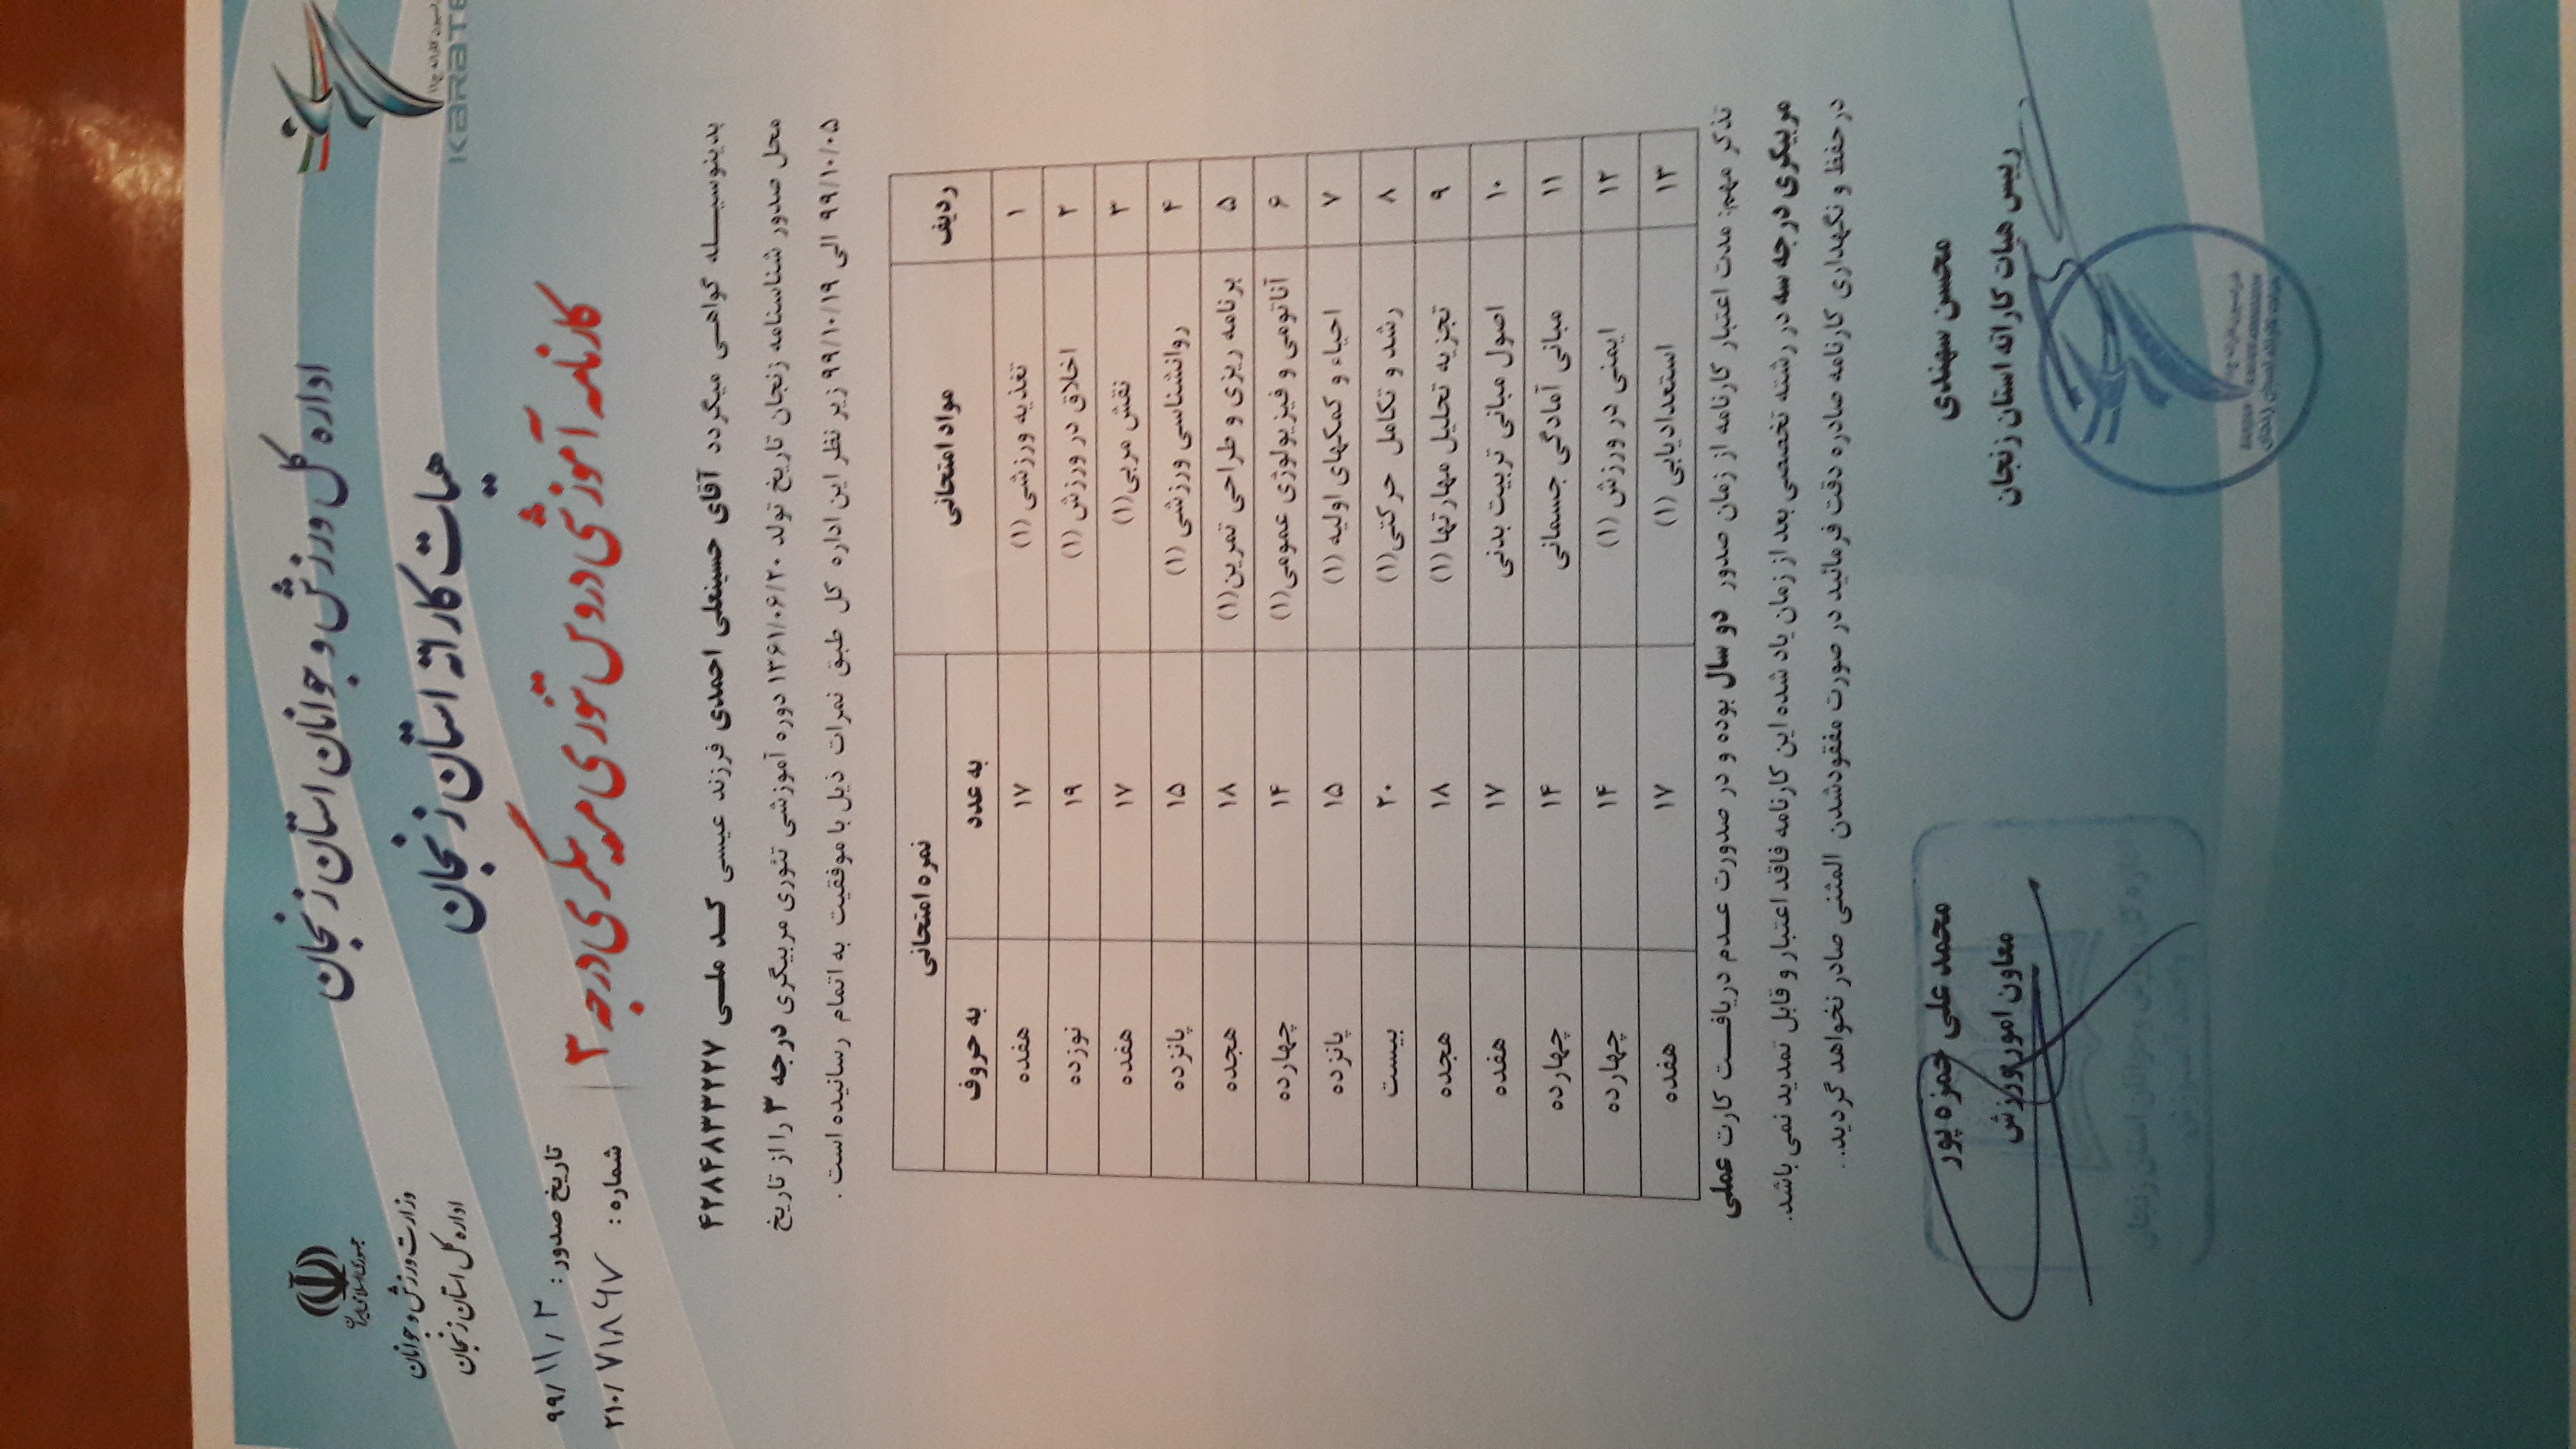 اداره کل ورزش و جوانان استان زنجان
هیات کاراته استان زنجان
کارنامه آموزشی دروس تئوری مربیگری درجه ۳
KARATE
جمهوری اسلامی ایران
وزارت ورزش و جوانان
اداره کل استان زنجان
تاریخ صدور : ۹۹/۱۱/۲
شماره : ۲۱۰/۷۱۸۶۷
بدینوسیله گواهی میگردد آقای حسینعلی احمدی فرزند عیسی کد ملی ۴۲۸۴۸۳۳۲۲۷
محل صدور شناسنامه زنجان تاریخ تولد ۱۳۶۱/۰۶/۲۰ دوره آموزشی تئوری مربیگری درجه ۳ را از تاریخ
۹۹/۱۰/۰۵ الی ۹۹/۱۰/۱۹ زیر نظر این اداره کل طبق نمرات ذیل با موفقیت به اتمام رسانیده است .
ردیف مواد امتحانی نمره امتحانی
به عدد به حروف
۱ تغذیه ورزشی (۱) ۱۷ هفده
۲ اخلاق در ورزش (۱) ۱۹ نوزده
۳ نقش مربی(۱) ۱۷ هفده
۴ روانشناسی ورزشی (۱) ۱۵ پانزده
۵ برنامه ریزی و طراحی تمرین(۱) ۱۸ هجده
۶ آناتومی و فیزیولوژی عمومی(۱) ۱۴ چهارده
۷ احیاء و کمکهای اولیه (۱) ۱۵ پانزده
۸ رشد و تکامل حرکتی(۱) ۲۰ بیست
۹ تجزیه تحلیل مهارتها (۱) ۱۸ هجده
۱۰ اصول مبانی تربیت بدنی ۱۷ هفده
۱۱ مبانی آمادگی جسمانی ۱۴ چهارده
۱۲ ایمنی در ورزش (۱) ۱۴ چهارده
۱۳ استعدادیابی (۱) ۱۷ هفده
تذکر مهم: مدت اعتبار کارنامه از زمان صدور دو سال بوده و در صدورت عدم دریافت کارت عملی
مربیگری درجه سه در رشته تخصصی بعد از زمان یاد شده این کارنامه فاقد اعتبار و قابل تمدید نمی باشد.
در حفظ و نگهداری کارنامه صادره دقت فرمائید در صورت مفقودشدن المثنی صادر نخواهد گردید...
محسن سهندی
رییس هیات کاراته استان زنجان
محمد علی حمزه پور
معاون امور ورزش